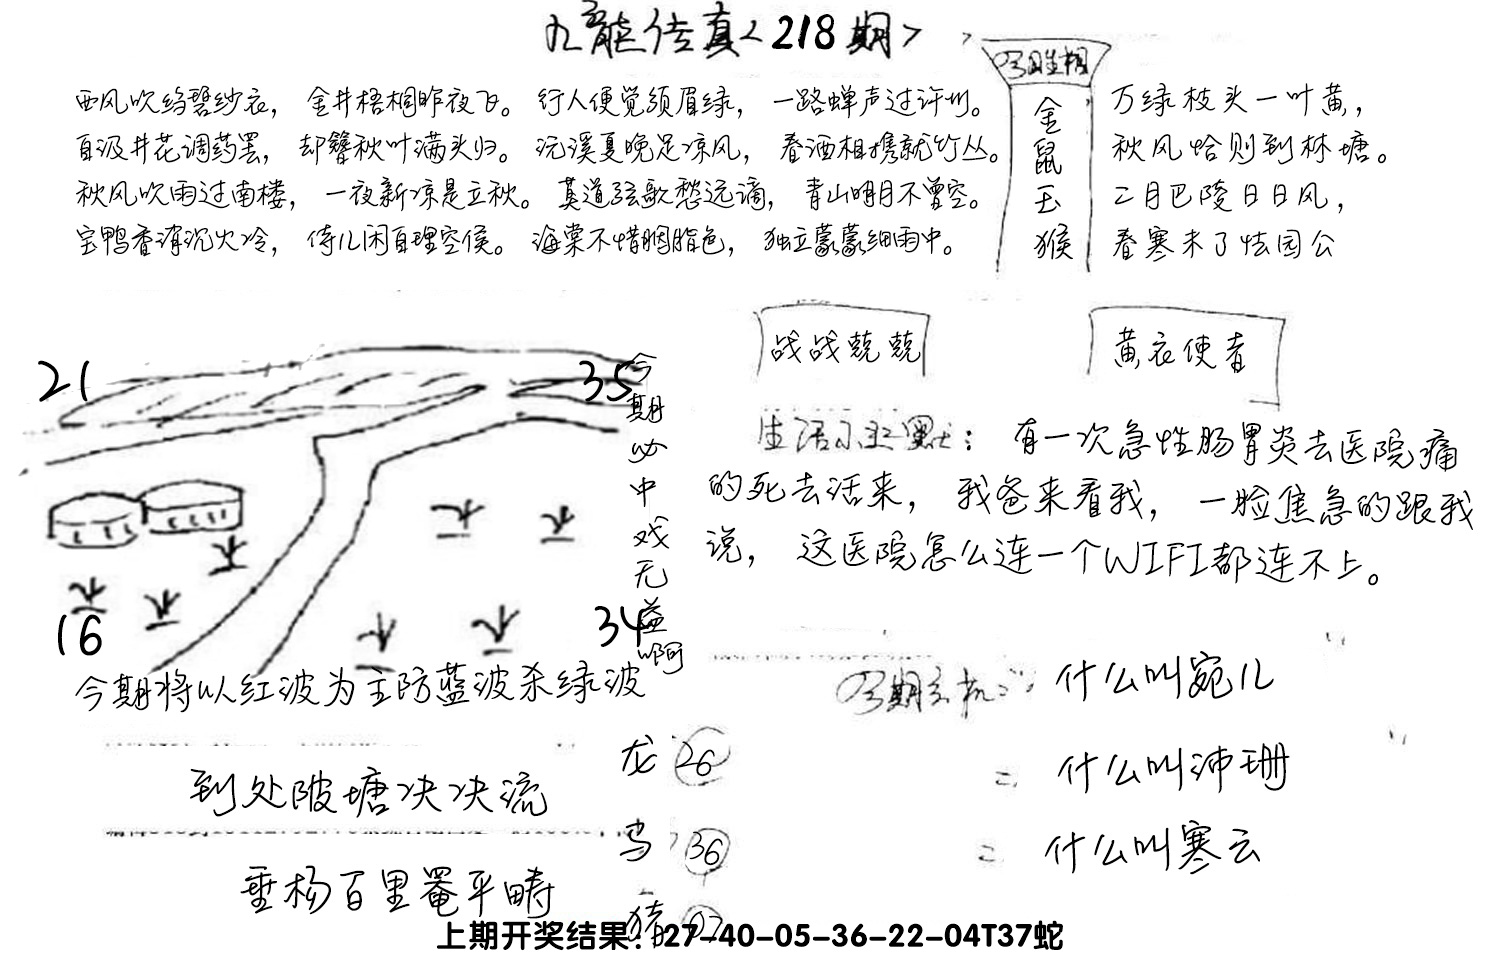 九龙传真<218期>
今日生相
金鼠玉猴
西风吹绉碧纱衣，金井梧桐昨夜飞。行人便觉须眉绿，一路蝉声过许州。
自汲井花调药罢，却簪秋叶满头归。沅溪夏晚足凉风，春酒相携就竹丛。
秋风吹雨过南楼，一夜新凉是立秋。莫道弦歌愁远谪，青山明月不曾空。
宝鸭香消沉火冷，侍儿闲自理空侯。海棠不惜胭脂色，独立蒙蒙细雨中。
万绿枝头一叶黄，
秋风恰则到林塘。
二月巴陵日日风，
春寒未了怯园公
战战兢兢
黄衣使者
21
35
16
34
今期必中戏无益啊
今期将以红波为主防蓝波杀绿波
生活小幽默：有一次急性肠胃炎去医院痛
的死去活来，我爸来看我，一脸焦急的跟我
说，这医院怎么连一个WIFI都连不上。
今期玄机
什么叫宛儿
什么叫沛珊
什么叫寒云
到处陂塘决决流
垂杨百里罨平畴
龙 26
鸟 36
猪 02
上期开奖结果：27-40-05-36-22-04T37蛇